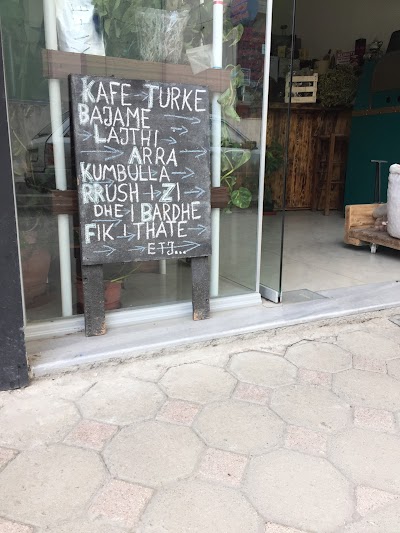 KAFE TURKE
BAJAME →
LAJTHI →
→ ARRA →
KUMBULLA →
RRUSH I ZI →
DHE I BARDHE
FIK I THATE →
→ → ETJ...